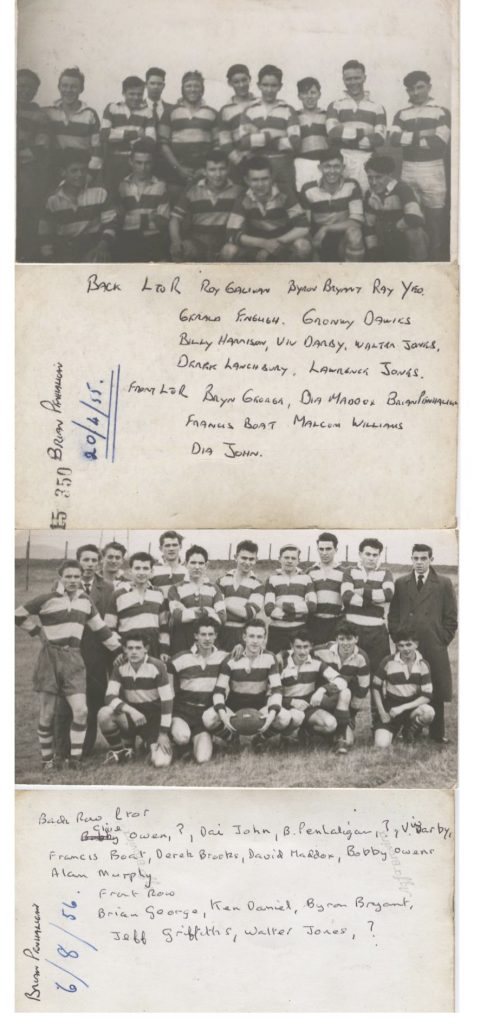 Back L to R Roy Galivan Byron Bryant Ray Yeo.
Gerald English. Gronwy Dawies
Billy Harrison, Viv Darby, Walter Jones,
Derek Lanchbury, Lawrence Jones.
Front L to R Bryn George, Dia Maddox Brian Penhaligan
Francis Boat Malcom Williams
Dia John.
Brian Penhaligan
20/4/55.
15 350
Back Row L to R
Clive Owen, ?, Dai John, B. Penhaligan, ?, Viv Darby,
Francis Boat, Derek Brooks, David Maddox, Bobby Owens
Alan Murphy
Front Row
Brian George, Ken Daniel, Byron Bryant,
Jeff Griffiths, Walter Jones, ?
Brian Penhaligan
6/8/56.